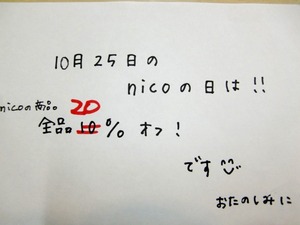 10月25日の
nicoの日は!!
nicoの商品 20
全品10%オフ!
です
おたのしみに